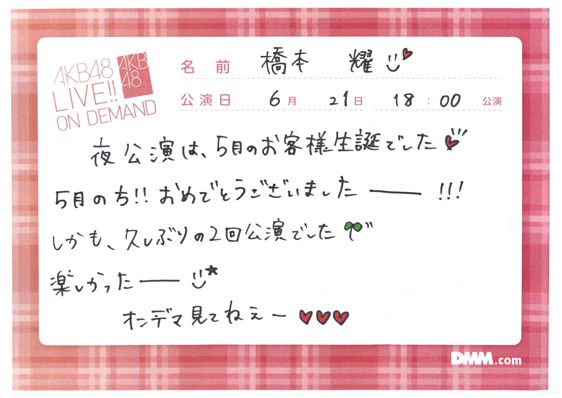 AKB48
LIVE!!
ON DEMAND
AKB
48
名前 橋本 耀
公演日 6月 21日 18:00 公演
夜公演は、5月のお客様生誕でした
5月のち!! おめでとうございましたー !!!
しかも、久しぶりの2回公演でした
楽しかったー
オンデマ見てねぇー
DMM.com